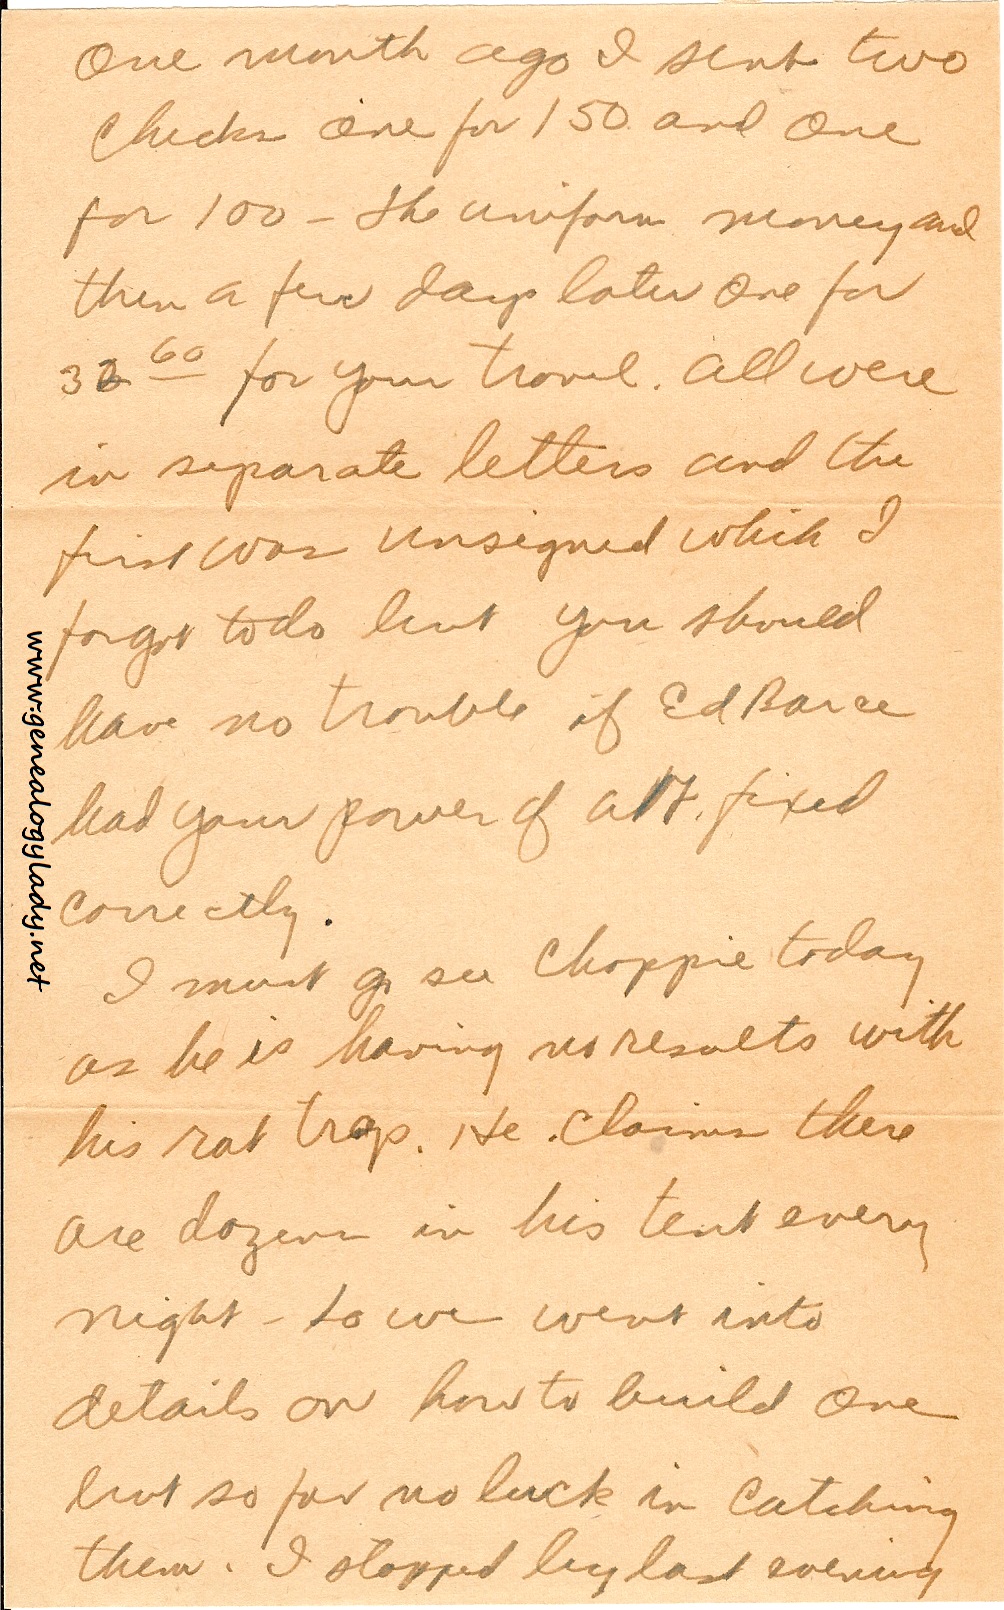 One month ago I sent two
checks one for 150 and one
for 100 – the uniform money and
then a few days later one for
32 60 for your travel. All were
in separate letters and the
first was unsigned which I
forgot to do but you should
have no trouble if Ed Barce
had your power of att. fixed
correctly.
I must go see Choppie today
as he is having no results with
his rat trap. He claims there
are dozens in his tent every
night – so we went into
details on how to build one
but so far no luck in catching
them. I stopped by last evening
www.genealogylady.net